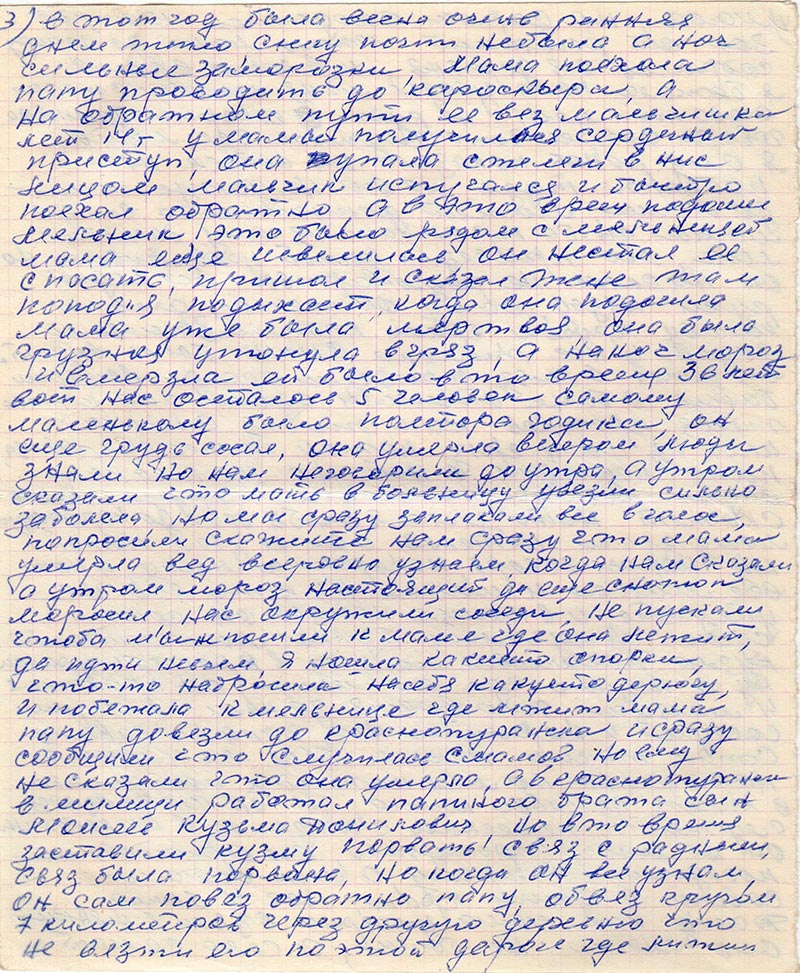 3) в тот год была весна очень ранняя
днем тепло снегу почти небыла а ноч
сильные заморозки, мама поехала
папу проводить до караскыра, а
на обратном пути ее вез мальчишка
лет 14г у мамы получился сердечный
приступ, она упала с телеги в нис
лицом мальчик испугался и быстро
поехал обратно а в это время подошел
мельник это было рядом с мельницей
мама еще шевелилас он нестал ее
спасать, пришол и сказал жене там
попадья подыхает, когда она подошла
мама уже была мертвоя она была
грузная утонула в гряз, а на ноч мороз
и вмерзла ей было в то время 36 лет
вот нас осталось 5 человек самому
маленькому было полтора годика он
еще грудь сосал, она умерла вечером люди
знали но нам неговорили до утра, а утром
сказали что мать в больницу увезли сильно
заболела, но мы сразу заплакали все в голос,
попросили скажите нам сразу что мама
умерла вед всеровно узнаем когда нам сказали
а утром мороз настоящий да еще снежок
моросил нас окружили соседи, не пускали
чтоба мы непошли к маме где она лежит,
да идти нечем, я ношла какието опорки,
что-то набросила насебя какуюто дерюгу,
и побежала к мельнице где лежит мама
папу довезли до краснотуранска и сразу
сообщили что случилас смамой но ему
не сказали что она умерла, а в краснотуранске
в милиции работал папиного брата сын
Моисей Кузьма Данилович, но в то время
заставили кузму порвать связ с родными,
связ была порвана, но когда он все узнал,
он сам повез обратно папу, обвез кругом
7 километров через другую деревню что
не везти его по этой дароге где лежит